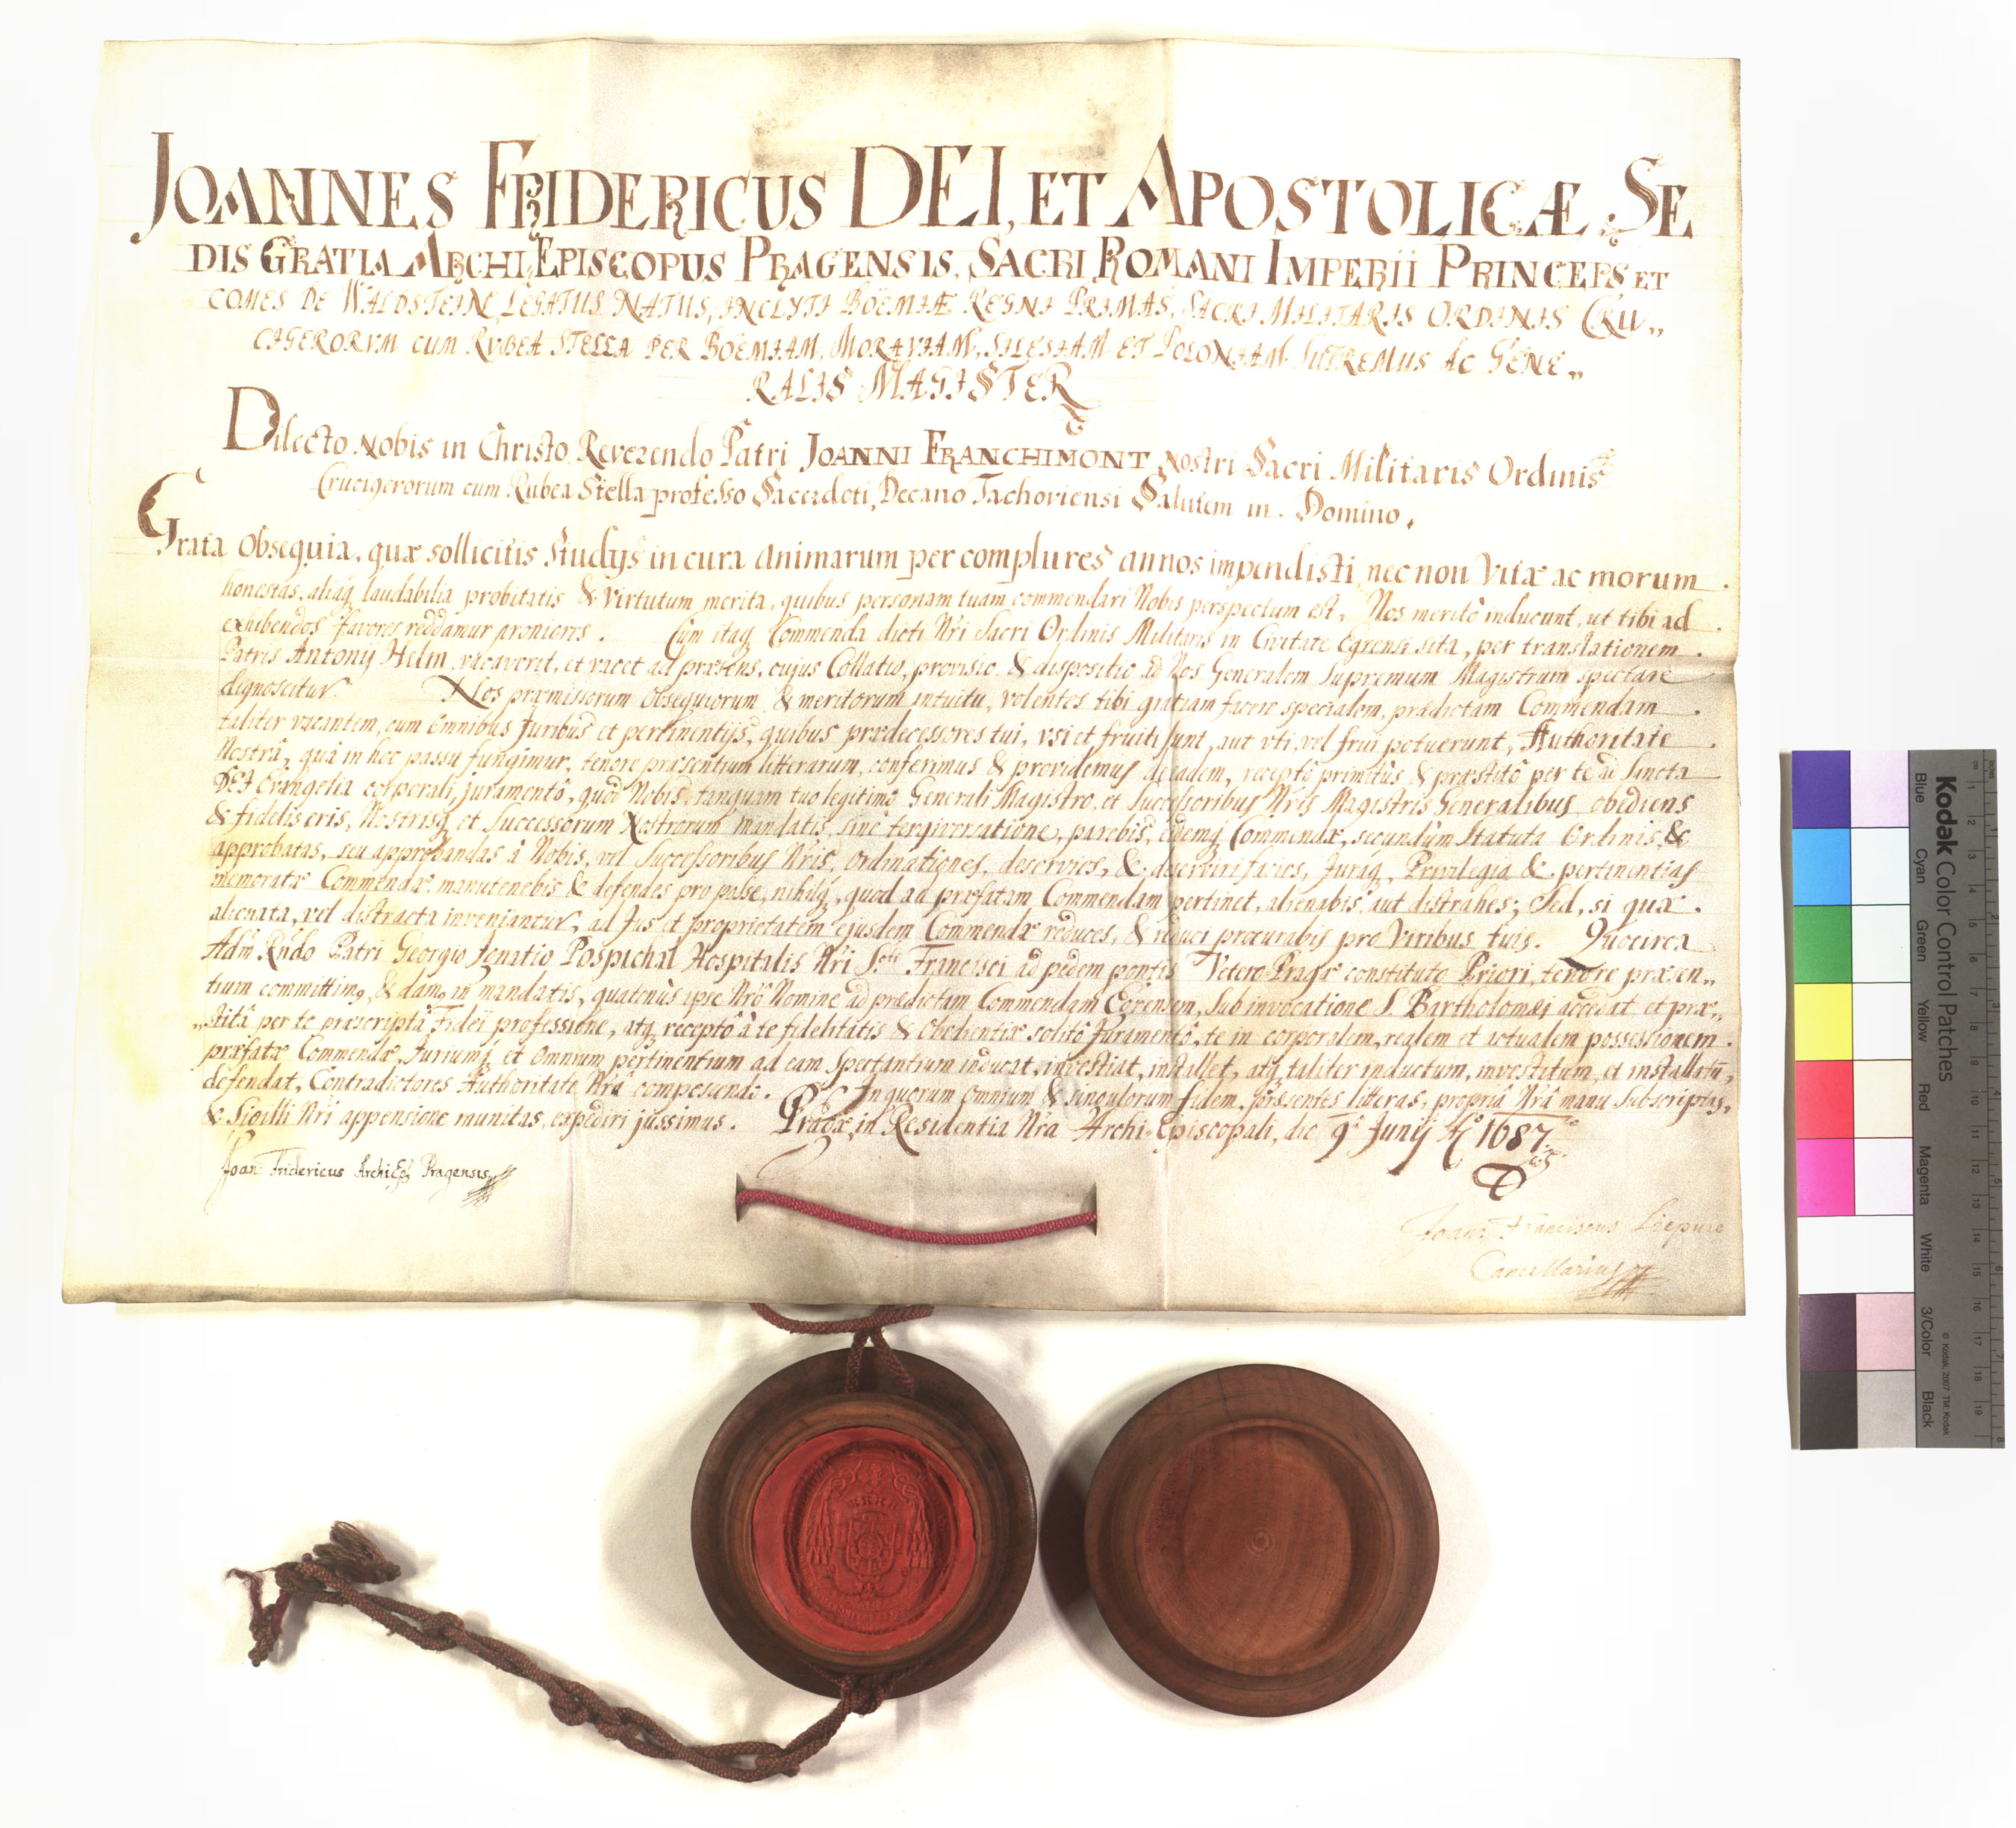 JOANNES FRIDERICUS DEI, ET APOSTOLICÆ SE
DIS GRATIA ARCHI EPISCOPUS PRAGENSIS, SACRI ROMANI IMPERII PRINCEPS ET
COMES DE WALDSTEIN LEGATUS NATUS, INCLYTI BOËMIÆ REGNI PRIMAS, SACRI MILITARIS ORDINIS CRU„
CIGERORVM CUM RVBEA STELLA PER BOËMIAM, MORAVIAM, SILESIAM ET POLONIAM SUPREMUS AC GENE„
RALIS MAGISTER
Dilecto Nobis in Christo Reverendo Patri JOANNI FRANCHIMONT Nostri Sacri Militaris Ordinis
Crucigerorum cum Rubea Stella professo Sacerdoti, Decano Tachoviensi Salutem in Domino.
Grata obsequia, quæ sollicitis Studijs in cura animarum per complures annos impendisti nec non Vitæ ac morum
honestas, aliaq laudabilia probitatis & virtutum merita, quibus personam tuam commendari Nobis perspectum est, Nos meritò inducunt, ut tibi ad
exhibendos favores reddamur proniores. Cùm itaq Commenda dicti Nri Sacri Ordinis Militaris in Civitate Egrensi sita, per translationem
Patris Antonij Helm, vacaverit, et vacet ad præsens, cujus Collatio, provisio & dispositio ad Nos Generalem Supremum Magistrum spectare
dignoscitur. Nos præmissorum obsequiorum & meritorum intuitu, volentes tibi gratiam facere specialem, prædictam Commendam
taliter vacantem, cum Omnibus Juribus et pertinentijs, quibus prædecessores tui, vsi et fruiti sunt, aut vti vel frui potuerunt, Authoritate
Nostrâ, quâ in hoc passu fungimur, tenore præsentium litterarum, conferimus & providemus de eadem, receptô primitùs & præstitô per te ad Sancta
DEI Evangelia corporali juramentô, quòd Nobis, tanquam tuo legitimô Generali Magistro, et Successoribus Nris Magistris Generalibus obediens
& fidelis eris, Nostrisq et Successorum Nostrorum mandatis, sinè tergiversatione, parebis, eidemq Commendæ, secundùm Statuta Ordinis, &
approbatas, seu approbandas à Nobis, vel Successoribus Nris, Ordinationes, deservies, & deserviri facies, Juraq, Privilegia & pertinentias
memoratæ Commendæ manutenebis & defendes pro posse, nihilq, quod ad præfatam Commendam pertinet, alienabis aut distrahes; Sed, si quæ
alienata, vel distracta inveniantur, ad Jus et proprietatem ejusdem Commendæ reduces, & reduci procurabis pro Viribus tuis. Quocirca
Adm Rndo Patri Georgio Ignatio Pospichal Hospitalis Nri Sti Francisci ad pedem pontis Vetero Pragæ constituto Priori, tenore præsen„
tium committimq, & damq in mandatis, quatenùs ipse Nrô Nomine ad prædictam Commendam Egrensem, sub invocatione S. Bartholomæi accedat et præ„
„stitâ per te præscriptâ Fideï professione, atq receptô à te fidelitatis & obedientiæ solitô Juramentô, te in corporalem, realem et actualem possessionem
præfatæ Commendæ, Juriumq et Omnium pertinentium ad eam spectantium inducat, investiat, installet, atq taliter inductum, investitum, et installatū,
defendat, Contradictores Authoritate Nrâ compescendo. In quorum omnium & singulorum fidem, præsentes litteras, propriâ Nrâ manu Subscriptas,
& Sigilli Nri appensione munitas, expediri jussimus. Pragæ, in Residentia Nra Archi-Episcopali, die 9 Junij Aº 1687.
Joan: Fridericus ArchiEp Pragensis
Joan: Franciscus Liepure
Cancellarius
Kodak Color Control Patches
Blue Cyan Green Yellow Red Magenta White 3/Color Black
© Kodak, 2007 TM: Kodak
cm 1 2 3 4 5 6 7 8 9 10 11 12 13 14 15 16 17 18 19
inches 1 2 3 4 5 6 7 8